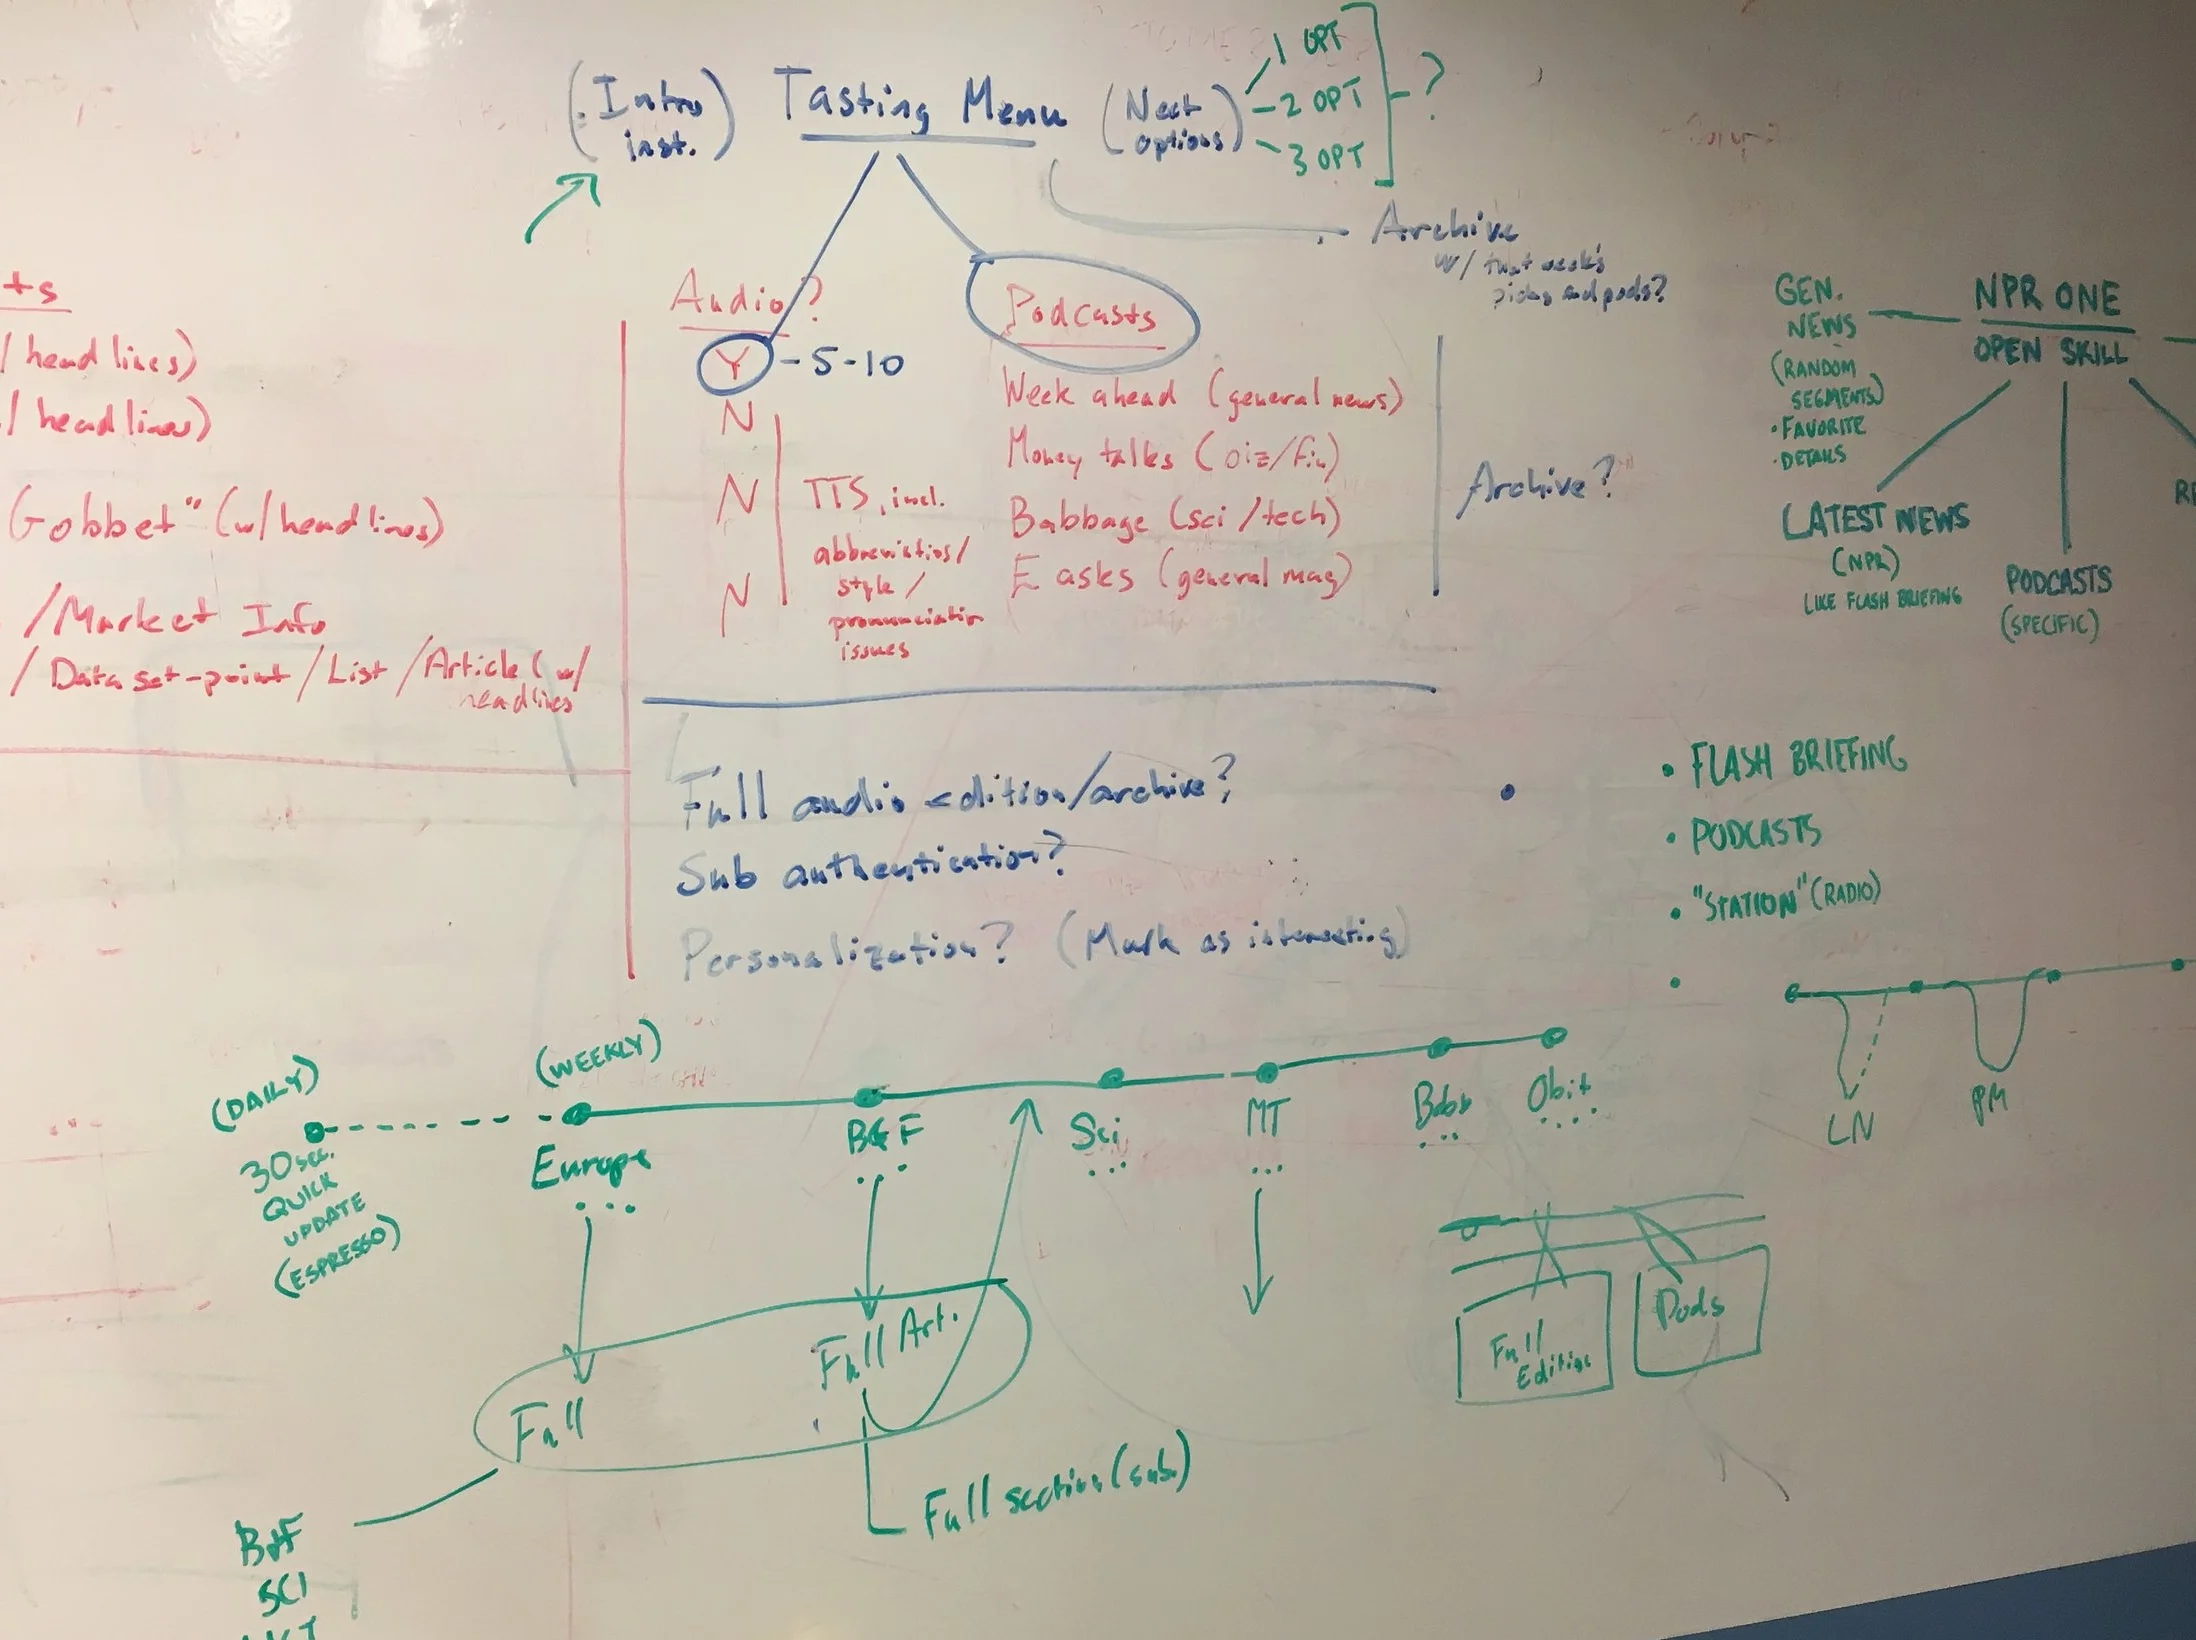 (Intro inst.) Tasting Menu (Next options)
1 OPT
2 OPT
3 OPT
?
Archive
w/ that week's
picks and pods?
ts
/ headlines)
/ headlines)
Gobbet" (w/ headlines)
/Market Info
/ Data set-point / List / Article (w/
headlines
Audio?
Y - 5-10
N
N
N
TTS, incl.
abbreviations/
style /
pronunciation
issues
Podcasts
Week ahead (general news)
Money talks (biz/fin)
Babbage (sci/tech)
E asks (general mag)
Archive?
Full audio edition/archive?
Sub authentication?
Personalization? (Mark as interesting)
NPR ONE
OPEN SKILL
GEN.
NEWS
(RANDOM
SEGMENTS)
• FAVORITE
• DETAILS
LATEST NEWS
(NPR)
LIKE FLASH BRIEFING
PODCASTS
(SPECIFIC)
RE
• FLASH BRIEFING
• PODCASTS
• "STATION" (RADIO)
•
LN
PM
(DAILY)
30 sec.
QUICK
UPDATE
(ESPRESSO)
(WEEKLY)
Europe
...
B&F
...
Sci
...
MT
...
Bab
...
Obit
...
Full
Full Art.
Full section (sub.)
Full
Edition
Pods
B&F
SCI